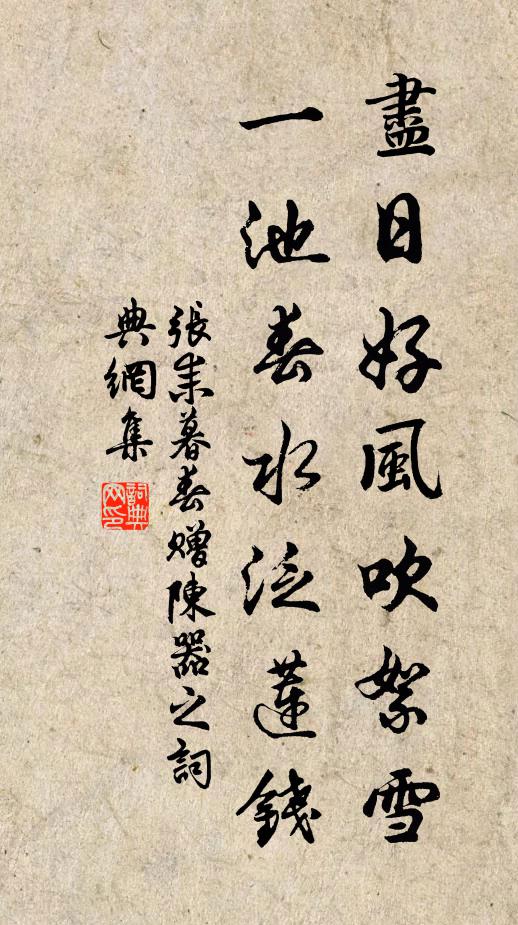 盡日好風吹絮雪
一池春水泛蓮錢
張耒暮春贈陳器之詞
典網集
詞典
网印